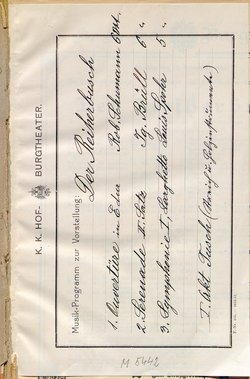 K. K. HOF-BURGTHEATER.
Musik-Programm zur Vorstellung:
Der Reiherbusch
1. Ouvertüre in E dur Rob. Schumann
2. Serenade I. Satz Ig. Brüll 6 "
3. Symphonie I, Larghetto Louis Spohr 5 "
I. Akt Tusch
M 5442